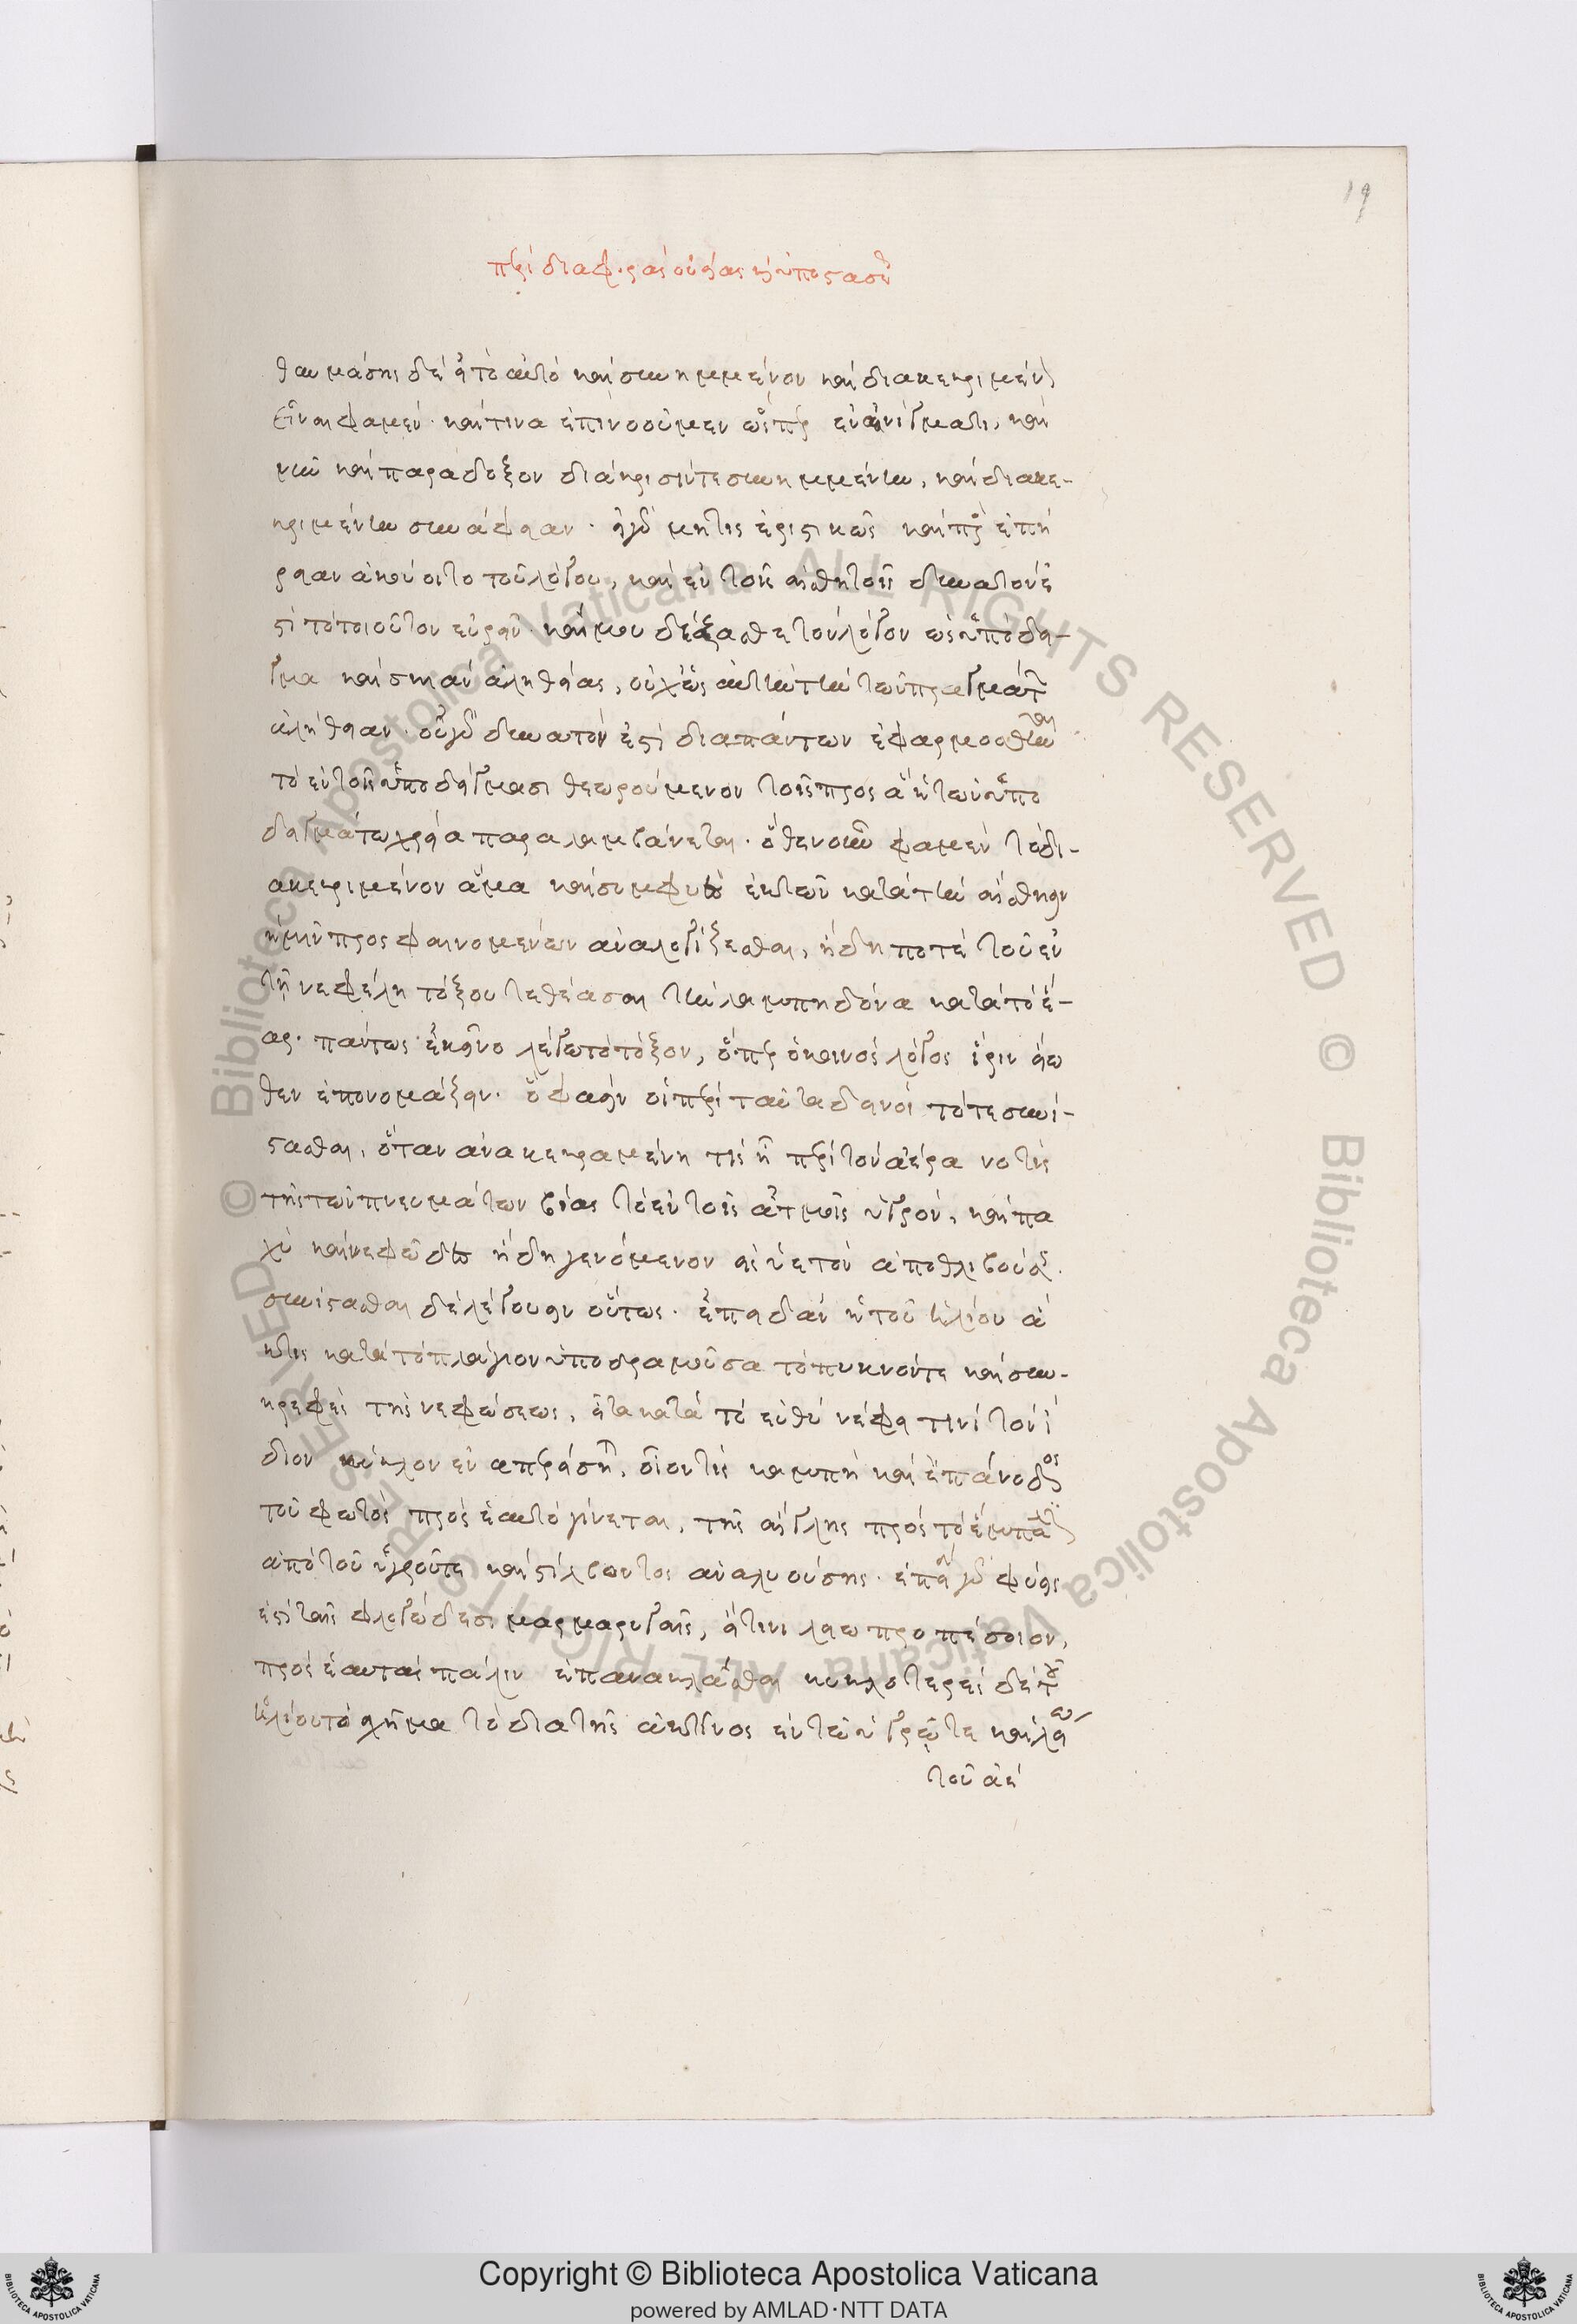 19
περὶ διαφορᾶς οὐσίας καὶ ὑποστάσεως
θαυμάσῃς δὲ εἰ τὸ αὐτὸ καὶ συνημμένον καὶ διακεκριμένον
εἶναι φαμέν· καί τινα ἐπινοοῦμεν ὥσπερ ἐν αἰνίγματι, καὶ
νὴν καὶ παράδοξον διάκρισίν τε συνημμένην, καὶ διακε-
κριμένην συνάφειαν. εἰ γὰρ μή τις ἐριστικῶς καὶ πρὸς ἐπή
ρειαν ἀκούοι τοῦ λόγου, καὶ ἐν τοῖς αἰσθητοῖς δυνατόν ἐ
στι τὸ τοιοῦτον εὑρεῖν. καί μου δέξασθε τὸν λόγον ὡς ὑπόδει-
γμα καὶ σκιὰν ἀληθείας, οὐχ ὡς αὐτὴν τὴν τῶν πραγμάτων
ἀλήθειαν. οὐ γὰρ δυνατόν ἐστι διαπάντων ἐφαρμοσθῆναι
τὸ ἐν τοῖς ὑποδείγμασι θεωρούμενον τοῖς πρὸς ἃ ἡ τῶν ὑπο
δειγμάτων χρεία παραλαμβάνεται. ὅθεν οὖν φαμὲν τὸ δι-
ακεκριμένον ἅμα καὶ συμφυὲς ἐκ τῶν κατὰ τὴν αἴσθησιν
ἡμῖν προσφαινομένων ἀναλογίζεσθαι, ἤδη ποτὲ τοῦ ἐν
τῇ νεφέλῃ τόξου τεθέασαι τὴν λαμπηδόνα κατὰ τὸ ἔ-
αρ. πάντως ἐκεῖνο λέγω τὸ τόξον, ὅπερ ὁ κοινὸς λόγος ἶριν εἴω
θεν ἐπονομάζειν. ὅ φασὶν οἱ περὶ ταῦτα δεινοὶ τότε συνί-
στασθαι, ὅταν ἀνακεκραμένη τις ᾖ περὶ τὸν ἀέρα νοτὶς
τῆς τῶν πνευμάτων βίας τὸ ἐν τοῖς ἀτμοῖς ὑγρὸν, καὶ πα
χὺ καὶ νεφῶδες ἤδη γενόμενον εἰς ὑετὸν ἀποθλιβούσης.
συνίστασθαι δὲ λέγουσιν οὕτως. ἐπειδὰν ἡ τοῦ ἡλίου ἀ
κτὶς κατὰ τὸ πλάγιον ὑποδραμοῦσα τὸ πυκνόν τε καὶ συν-
ηρεφὲς τῆς νεφώσεως, εἶτα κατὰ τὸ εὐθὺ νέφει τινὶ τὸν ἴ
διον κύκλον ἐναπερείσῃ, οἷόν τις καμπὴ καὶ ἐπάνοδος
τοῦ φωτὸς πρὸς ἑαυτὸ γίνεται, τῆς αἴγλης πρὸς τὸ ἔμπαλιν
ἀπὸ τοῦ ὑγροῦ τε καὶ στίλβοντος ἀναλυούσης. ἐπεὶ γὰρ φύσις
ἐστὶ ταῖς φλογώδεσι μαρμαρυγαῖς, εἴ τινι λείῳ προσπέσοιεν,
πρὸς ἑαυτὰς πάλιν ἐπανακλᾶσθαι κυκλοτερὲς δὲ τοῦ
ἡλίου τὸ σχῆμα τὸ διὰ τῆς ἀκτῖνος ἐν τῷ ὑγρῷ τε καὶ λείῳ
τοῦ ἀέ